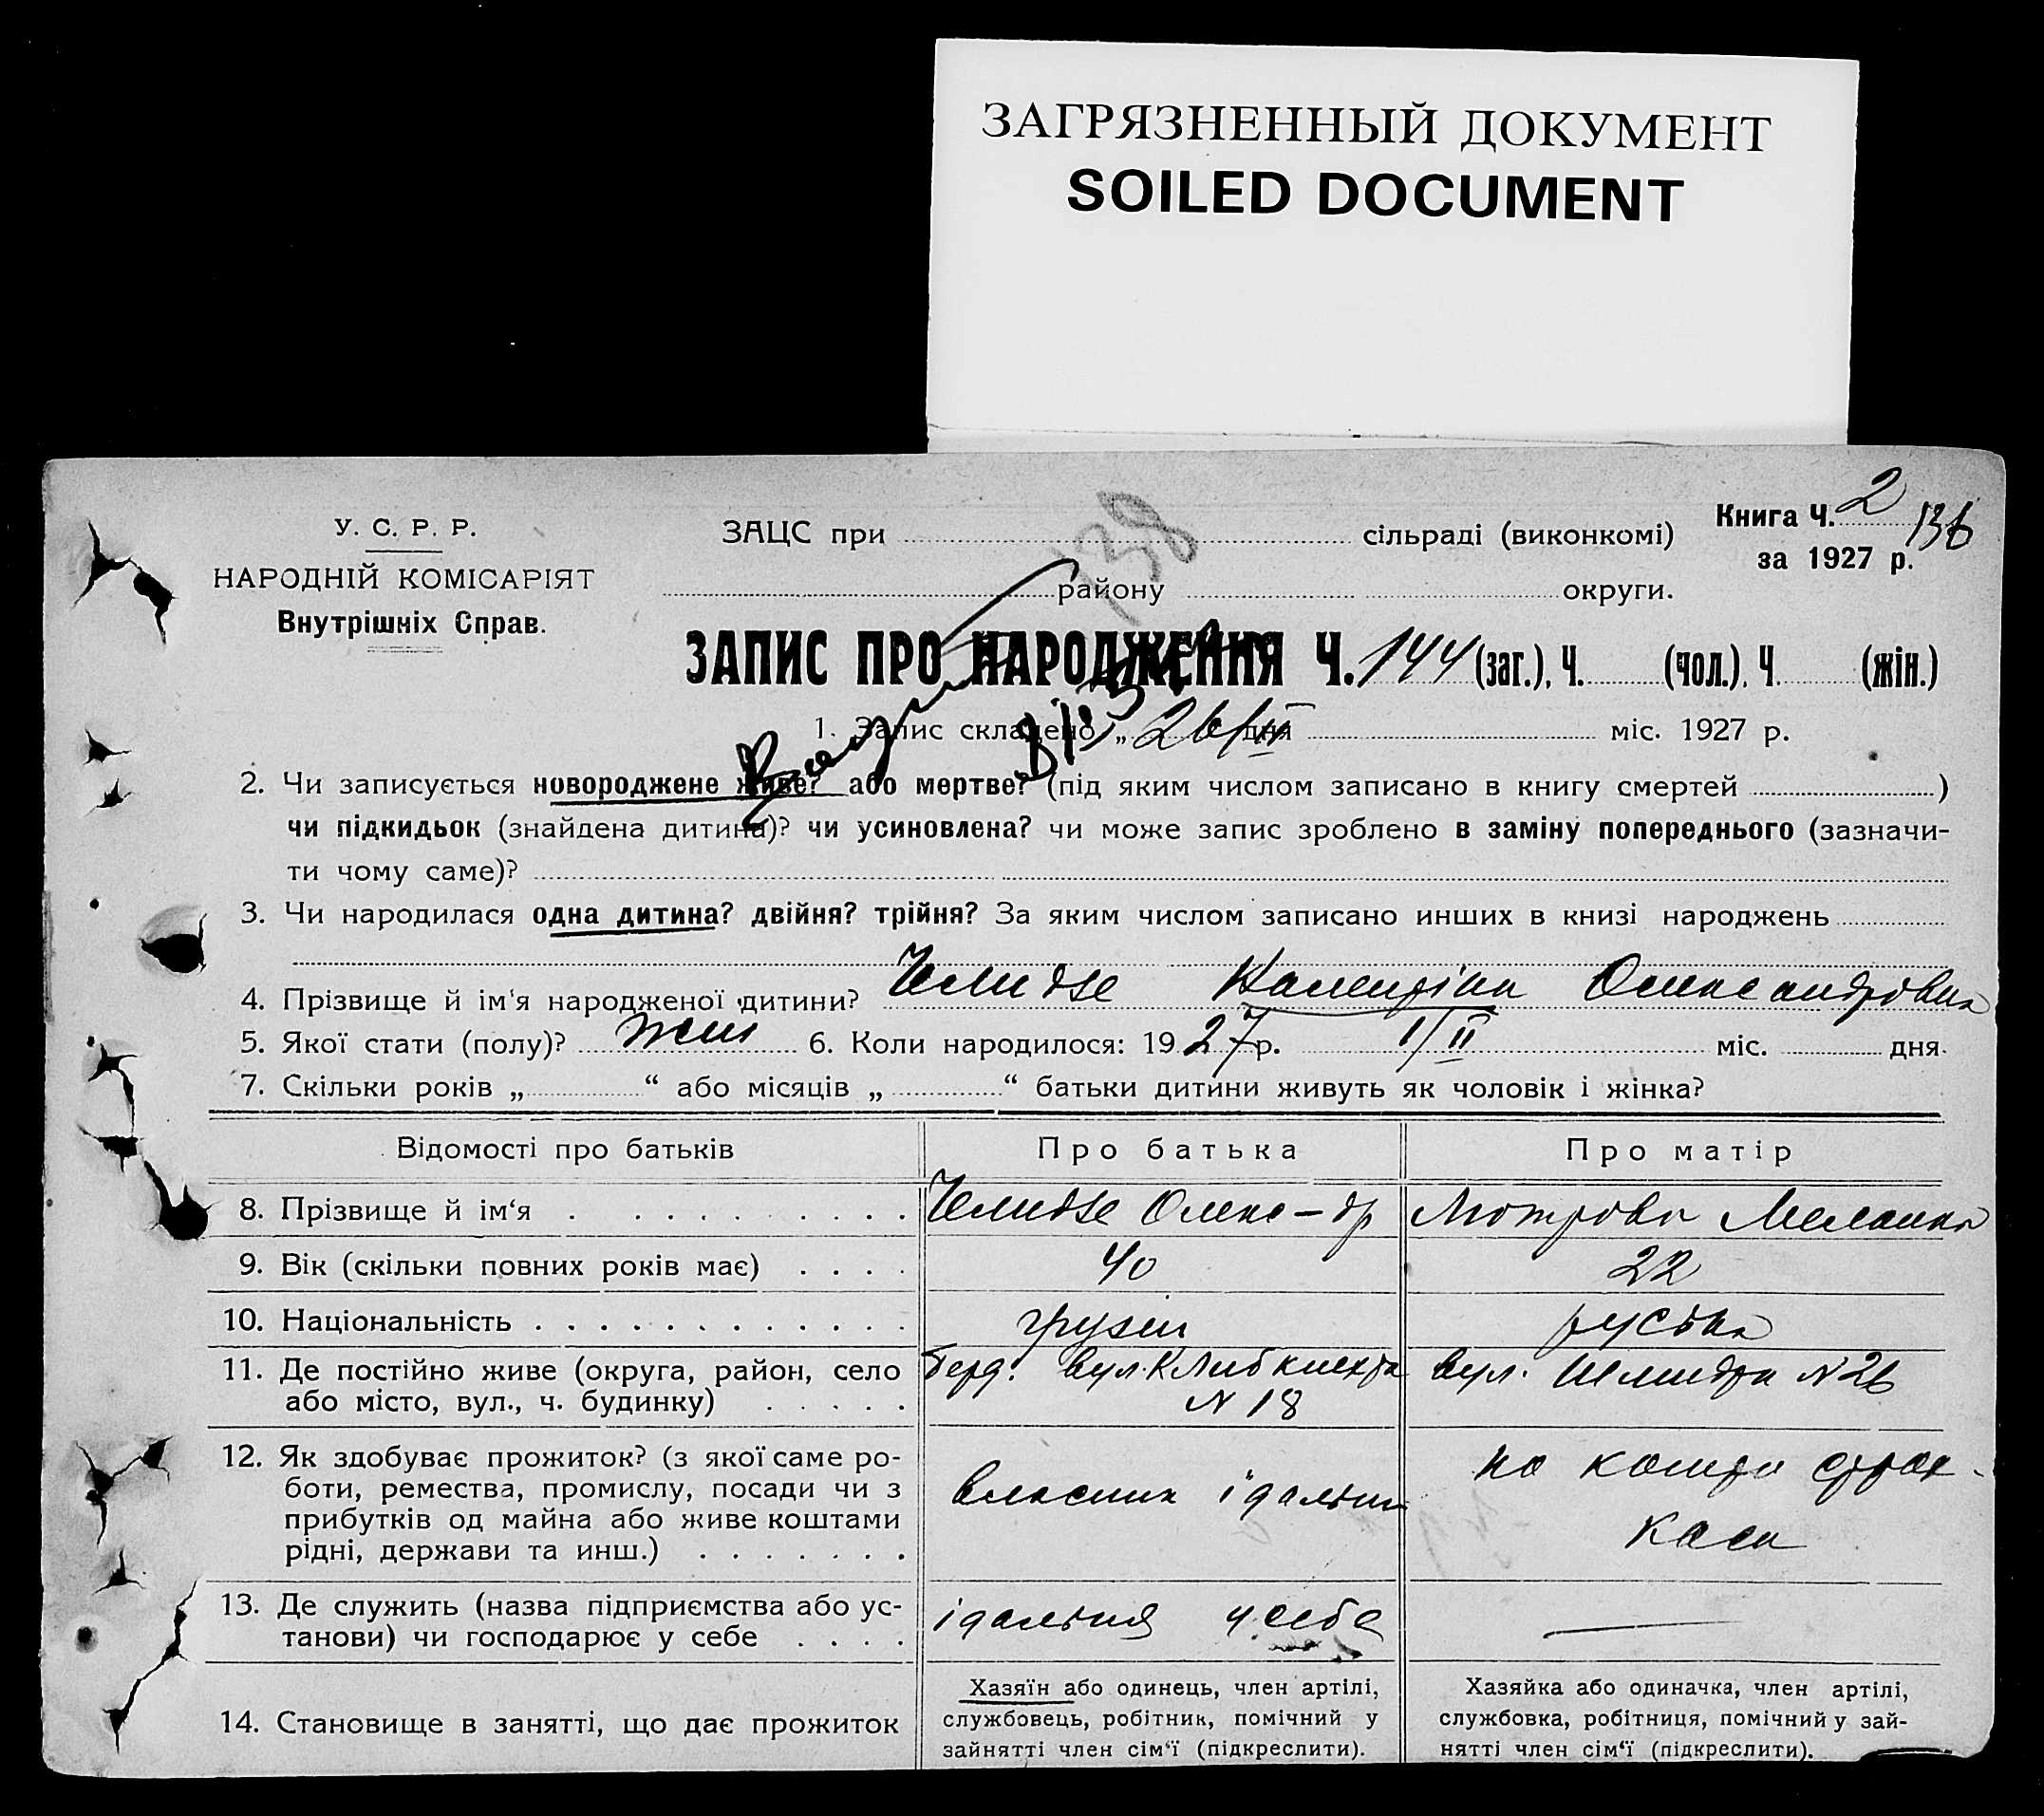 ЗАГРЯЗНЕННЫЙ ДОКУМЕНТ
SOILED DOCUMENT
Книга Ч. 2 136
за 1927 р.
У. С. Р. Р.
НАРОДНІЙ КОМІСАРІЯТ
Внутрішніх Справ.
ЗАЦС при сільраді (виконкомі)
138
району округи.
ЗАПИС ПРО НАРОДЖЕННЯ Ч. 144 (заг.), Ч. (чол.), Ч. (жін.)
1. Запис складено „ 26/II дня міс. 1927 р.
2. Чи записується новороджене живе? або мертве? (під яким числом записано в книгу смертей )
чи підкидьок (знайдена дитина)? чи усиновлена? чи може запис зроблено в заміну попереднього (зазначи-
ти чому саме)?
3. Чи народилася одна дитина? двійня? трійня? За яким числом записано инших в книзі народжень
4. Прізвище й ім'я народженої дитини? Челидзе Олександровна
5. Якої стати (полу)? жін 6. Коли народилося: 1927 р. 1/II міс. дня.
7. Скільки років „ “ або місяців „ “ батьки дитини живуть як чоловік і жінка?
Відомості про батьків Про батька Про матір
8. Прізвище й ім‘я Челидзе Олекс-др Мотрова Меланка
9. Вік (скільки повних років має) 40 22
10. Національність грузін руська
11. Де постійно живе (округа, район, село
або місто, вул., ч. будинку)
берд. вул. К Либкнехта
N 18
вул. Шмидта N 26
12. Як здобуває прожиток? (з якої саме ро-
боти, ремества, промислу, посади чи з
прибутків од майна або живе коштами
рідні, держави та инш.)
власник ідальни
на кошти страх.
каси
13. Де служить (назва підприємства або ус-
танови) чи господарює у себе
ідальня у себе
14. Становище в занятті, що дає прожиток
Хазяїн або одинець, член артілі,
службовець, робітник, помічний у
зайнятті член сім‘ї (підкреслити).
Хазяйка або одиначка, член артілі,
службовка, робітниця, помічний у зай-
нятті член сім‘ї (підкреслити).